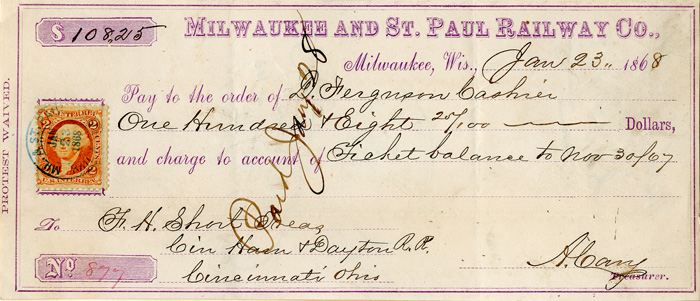 $ 108,25
MILWAUKEE AND ST. PAUL RAILWAY CO.,
Milwaukee, Wis., Jan 23.. 1868
Pay to the order of D. Ferguson Cashier
One Hundred & Eight 25/100 Dollars,
and charge to account of Ticket balance to Nov 30/67
To F. H. Short Treas
Cin Ham & Dayton R.R.
Cincinnati Ohio
No 877
Treasurer.
PROTEST WAIVED.
Paid Jany 28
JAN
23
1868